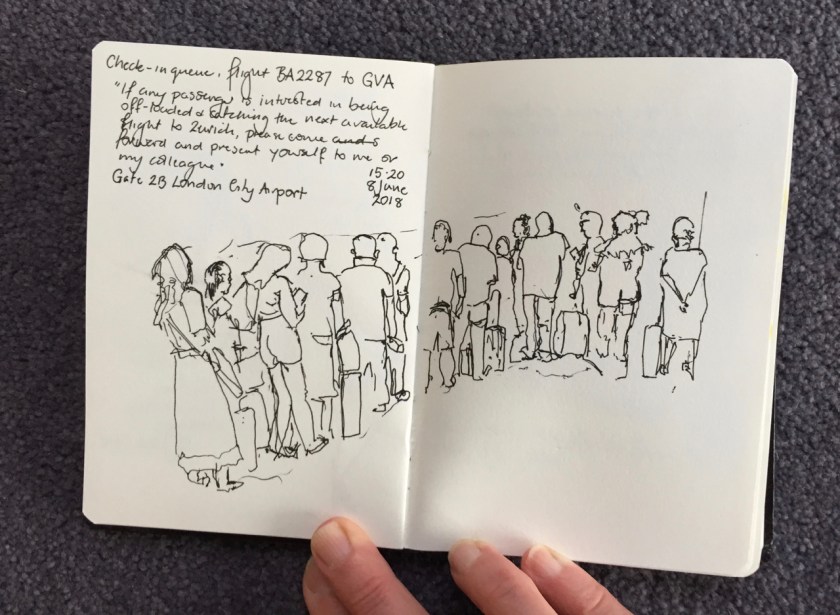 Check-in queue, flight BA2287 to GVA
"If any passenger is interested in being
off-loaded & catching the next available
flight to Zurich, please come and s
forward and present yourself to me or
my colleague."
15:20
Gate 2B London City Airport
8 June
2018